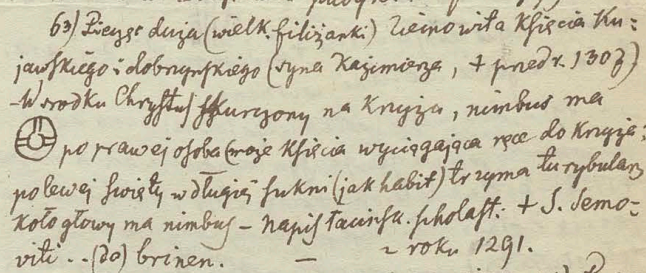 63) Pieczęć duża (wielk. filiżanki) Ziemowita Księcia Ku=
jawskiego i dobrzyńskiego (syna Kazimierza, + przed r. 1307)
- W środku Chrystus skurczony na krzyżu, nimbus ma
po prawej osoba (może Księcia wyciągająca ręce do krzyża:
po lewej święty w długiéj sukni (jak habit) trzyma turybularz
koło głowy ma nimbus – napis łacińsk. + S. Semo=
viti .. (do) brinen. — z roku 1291.